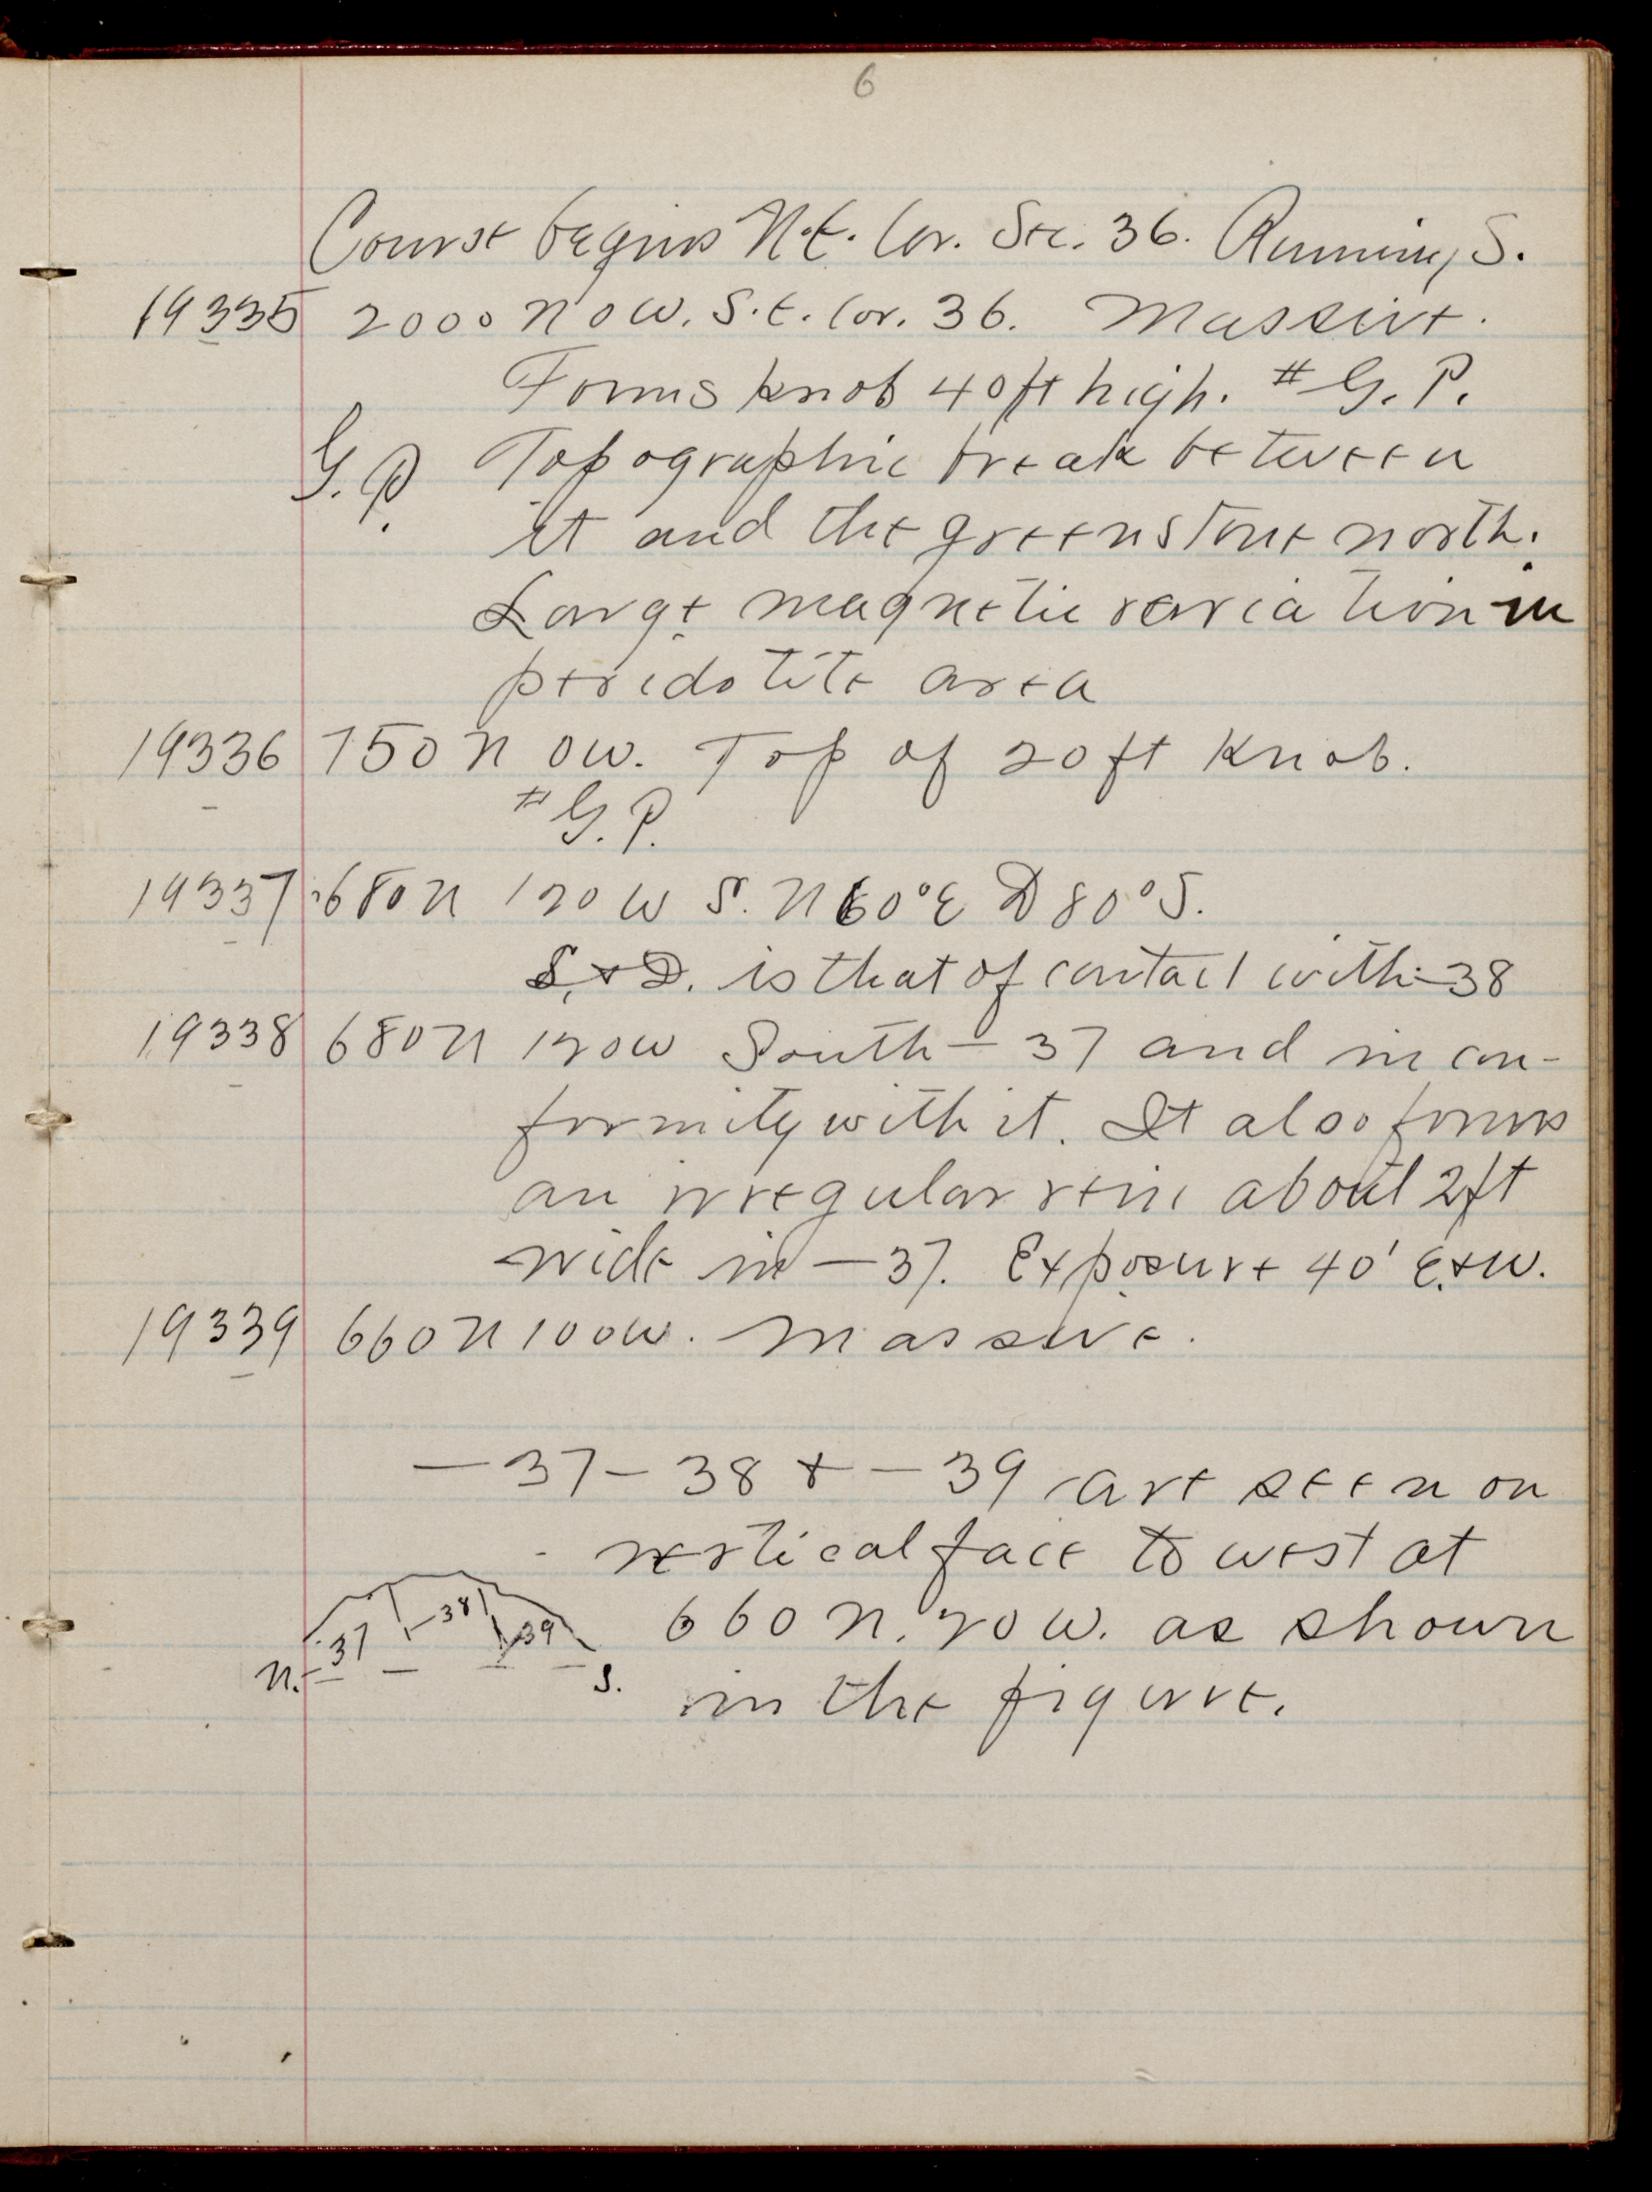 6
Course begins N.E. Cor. Sec. 36. Running S.
19335 2000 N 0 W. S.E. Cor. 36. Massive.
Forms knob 40 ft high. # G. P.
G. P. Topographic break between
it and the greenstone north.
Large magnetic variation in
peridotite area
19336 750 N 0 W. Top of 20 ft Knob.
# G. P.
19337 680 N 120 W S. N 60° E D 80° S.
S. & D. is that of contact with -38
19338 680 N 120 W South - 37 and in con-
formity with it. It also forms
an irregular vein about 2 ft
wide in - 37. Exposure 40' E. & W.
19339 660 N 100 W. Massive.
- 37 - 38 & - 39 are seen on
vertical face to west at
660 N. 70 W. as shown
in the figure.
37 -38 39
N. S.